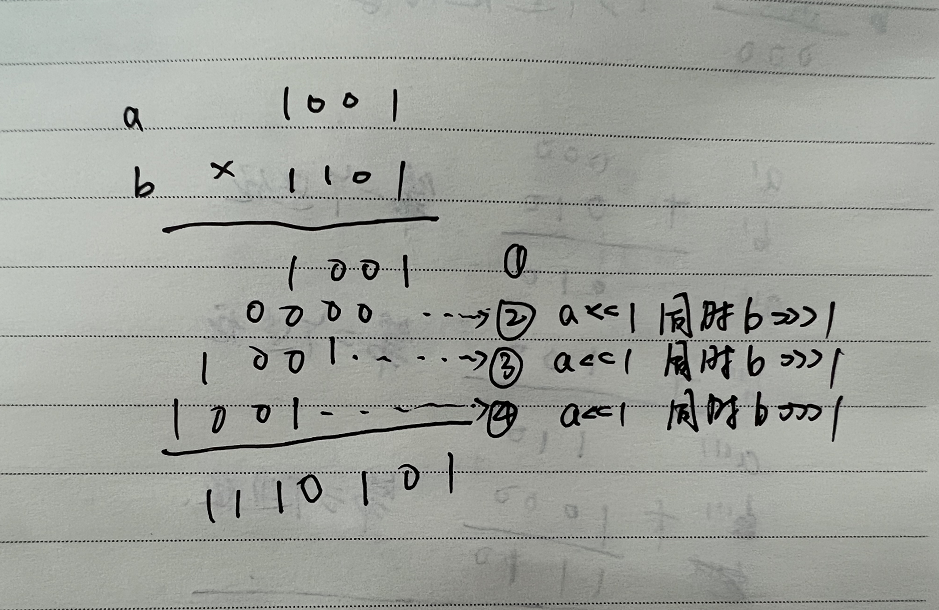 a 1001
b × 1101
1001 ①
0000 ----→ ② a<<1 同时 b>>>1
1001 -----→ ③ a<<1 同时 b>>>1
1001 -----→ ④ a<<1 同时 b>>>1
1110101